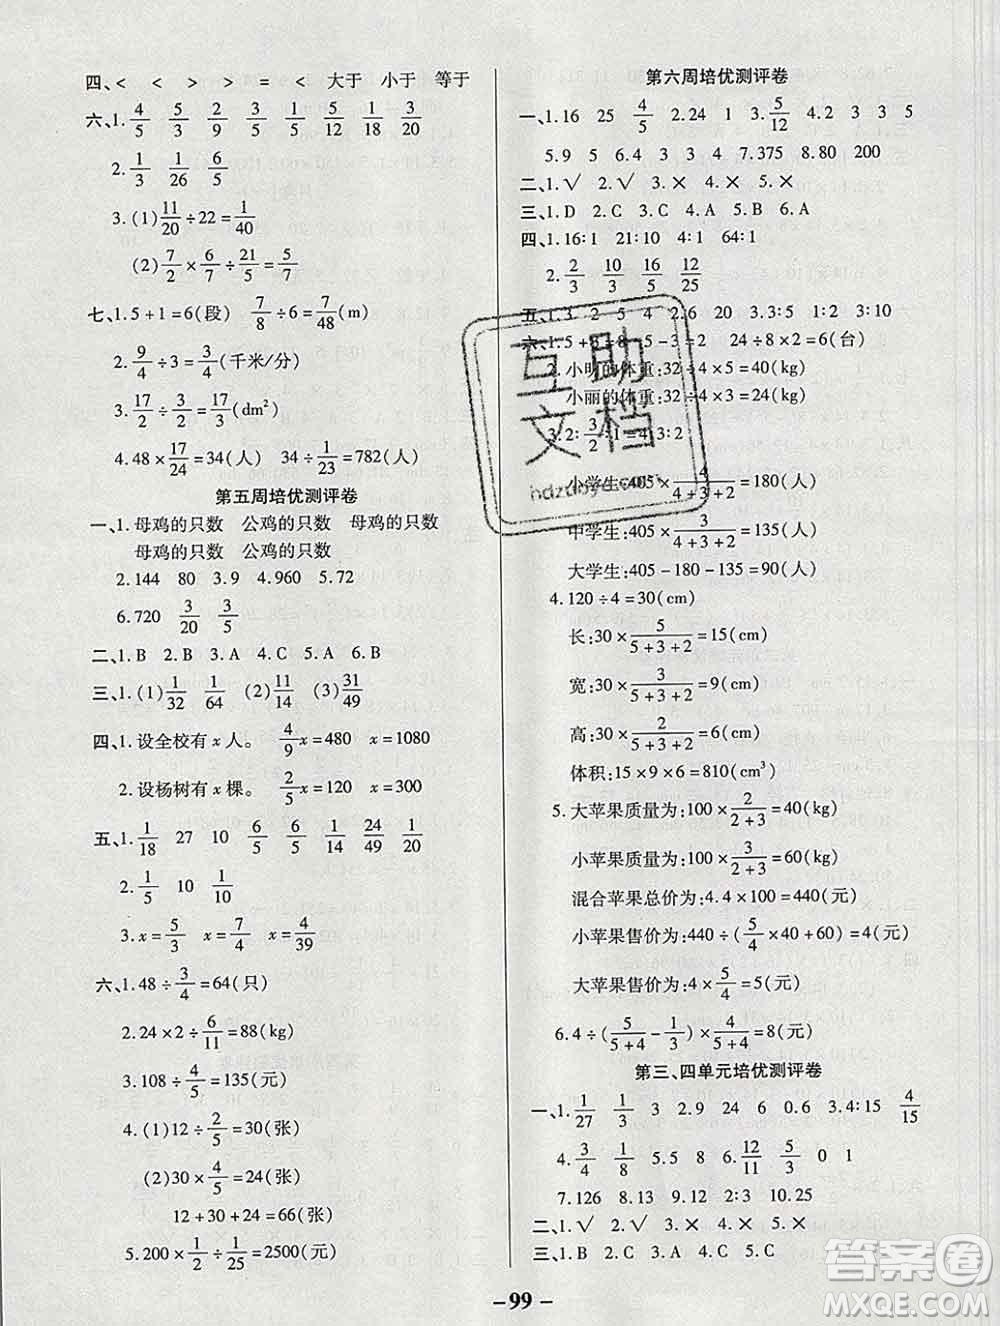 四、< < > > = < 大于 小于 等于
六、1. 4/5 5/3 2/99 3/5 1/5 5/12 1/18 3/20
2. 1/3 1/26 6/5
3. (1) 11/20 ÷ 22 = 1/40
(2) 7/2 × 6/7 ÷ 21/5 = 5/7
七、1. 5 + 1 = 6(段) 7/8 ÷ 6 = 7/48 (m)
2. 9/4 ÷ 3 = 3/4 (千米/分)
3. 17/2 ÷ 3/2 = 17/3 (dm²)
4. 48 × 17/24 = 34(人) 34 ÷ 1/23 = 782(人)
第五周培优测评卷
一、1. 母鸡的只数 公鸡的只数 母鸡的只数
母鸡的只数 公鸡的只数
2. 144 80 3. 9 4. 960 5. 72
6. 720 3/20 3/5
二、1. B 2. B 3. A 4. C 5. A
三、1. (1) 1/32 1/64 (2) 11/14 (3) 31/49
四、1. 设全校有 x 人。 4/9 x = 480 x = 1080
2. 设杨树有 x 棵。 2/5 x = 120 x = 300
五、1. 1/18 27 10 6/5 6/5 1/14 24/49 1/20
2. 1/5 10 1/10
3. x = 5/3 x = 7/4 x = 4/39
六、1. 48 ÷ 3/4 = 64(只)
2. 24 × 2 ÷ 6/11 = 88(kg)
3. 108 ÷ 4/5 = 135(元)
4. (1) 12 ÷ 2/5 = 30(张)
(2) 30 × 4/5 = 24(张)
12 + 30 + 24 = 66(张)
5. 200 × 1/2 ÷ 1/25 = 2500(元)
第六周培优测评卷
一、1. 16 25 4/5 2. 24 1 3. 5/12 4. 2 3 3 5
5. 9 5 6. 4 3 4 3 7. 375 8. 80 200
二、1. √ 2. √ 3. × 4. × 5. ×
三、1. D 2. C 3. C 4. A 5. B 6. A
四、1. 16∶1 21∶10 4∶1 64∶1
2. 2/3 10/3 16/5 12/25
五、1. 3 2 5 4 2. 6 20 3. 12 8 10
24 ÷ 8 × 2 = 6(台)
2. 小明的体重:32 ÷ 4 × 5 = 40(kg)
小丽的体重:32 ÷ 4 × 3 = 24(kg)
小学生:405 × 4/(4 + 3 + 2) = 180(人)
中学生:405 × 3/(4 + 3 + 2) = 135(人)
大学生:405 − 180 − 135 = 90(人)
4. 120 ÷ 4 = 30(cm)
长:30 × 5/(5 + 3 + 2) = 15(cm)
宽:30 × 3/(5 + 3 + 2) = 9(cm)
高:30 × 2/(5 + 3 + 2) = 6(cm)
体积:15 × 9 × 6 = 810(cm³)
5. 大苹果质量为:100 × 2/(2 + 3) = 40(kg)
小苹果质量为:100 × 3/(2 + 3) = 60(kg)
混合苹果总价为:4.4 × 100 = 440(元)
小苹果售价为:440 ÷ (5/4 × 40 + 60) = 4(元)
大苹果售价为:4 × 5/4 = 5(元)
6. 4 ÷ (5/(5 + 4) − 1/3) × 4/(5 + 4) = 8(元)
第三、四单元培优测评卷
一、1. 1/27 1/3 3 2. 9 24 6 0.6 3. 4∶15 4/15
4. 3/4 1/8 5. 5 8 6. 12/11 5/3 0 1
7. 126 8. 13 9. 12 2∶3 10. 25
二、1. √ 2. √ 3. × 4. × 5. ×
三、1. B 2. C 3. A 4. C 5. C
- 99 -
互助
文档
答案圈
MXQE.COM